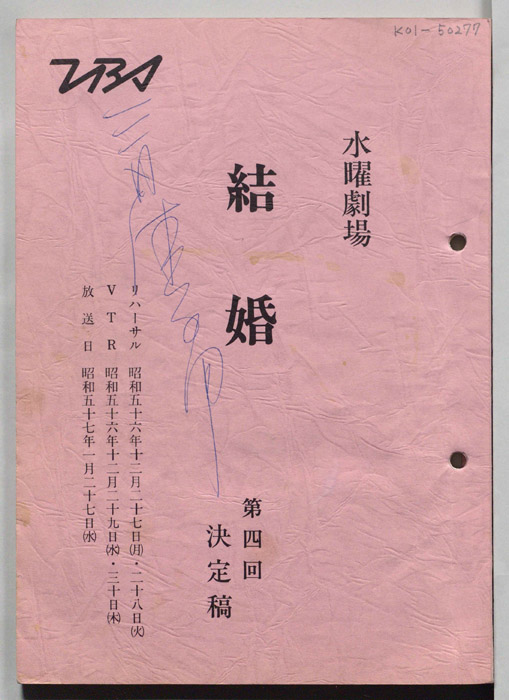 K01-50277
TBS
水曜劇場
結婚
第四回
決定稿
リハーサル 昭和五十六年十二月二十七日(月)・二十八日(火)
VTR 昭和五十六年十二月二十九日(水)・三十日(木)
放送日 昭和五十七年一月二十七日(水)